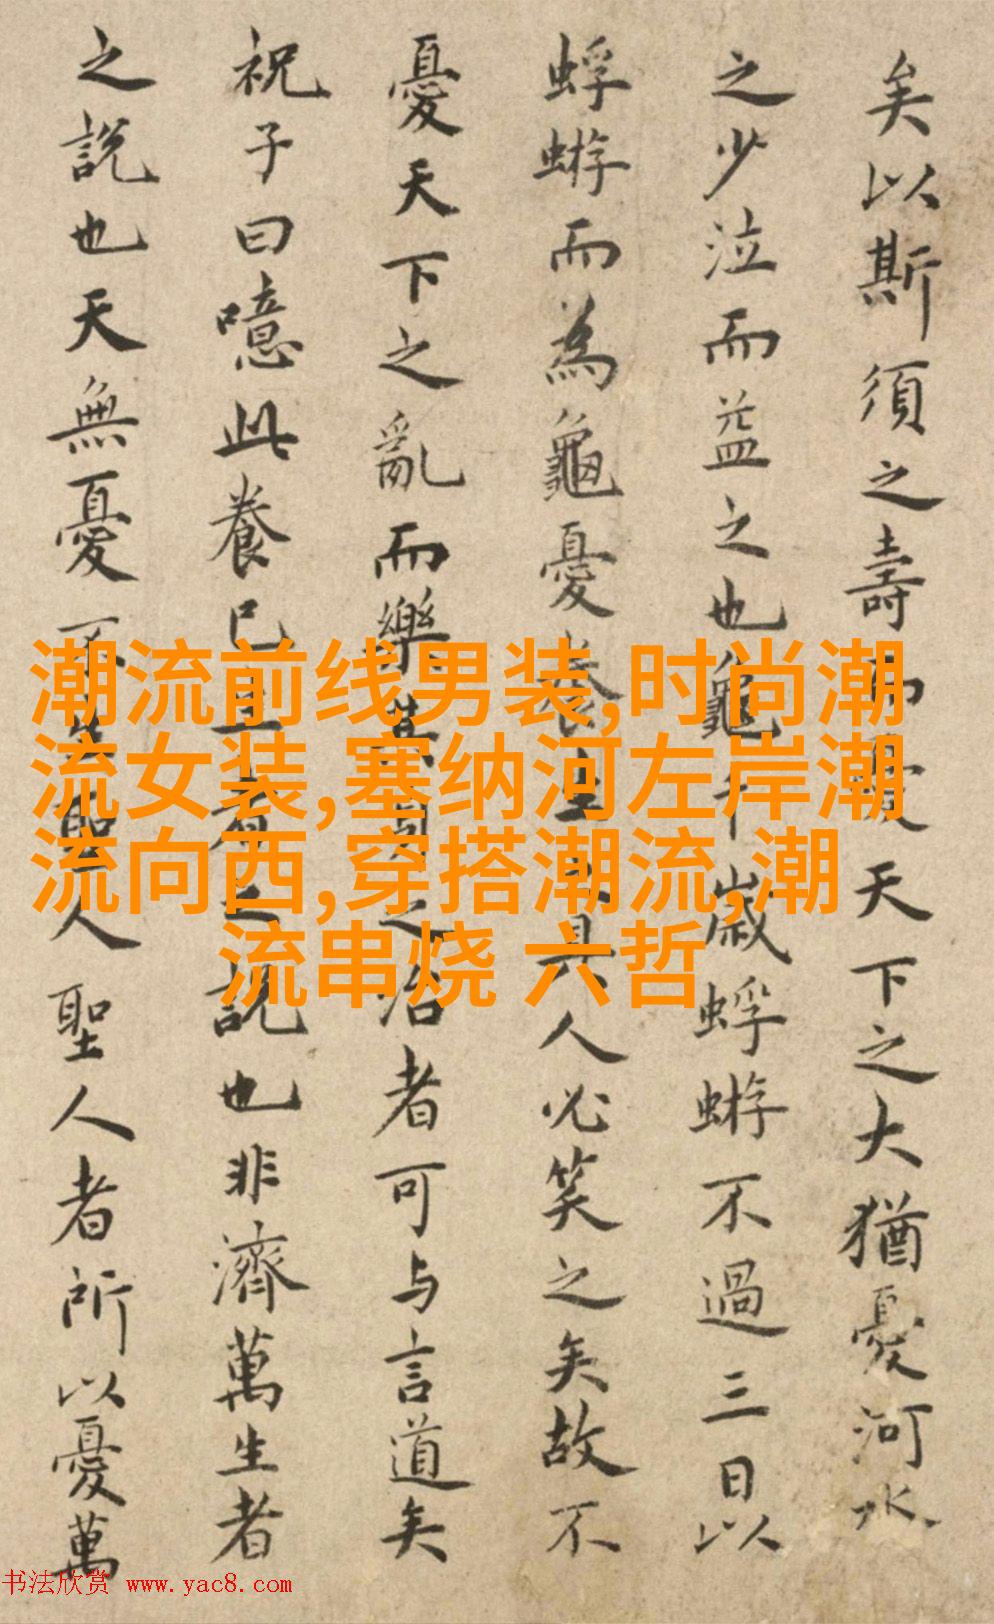 矣以斯須之壽而憂天下之大猶憂河水
之少泣而益之也龜千歲蜉蝣不過三日以
蜉蝣而為龜憂養生之具人必笑之矣故不
憂天下之亂而樂其身之治者可与言道矣
祝子曰噫此養己且者之說也非濟萬生者
之說也天無憂不生聖人聖人者所以憂萬
潮流前线男装,时尚潮
流女装,塞纳河左岸潮
流向西,穿搭潮流,潮
流串烧 六哲
书法欣赏 www.yac8.com